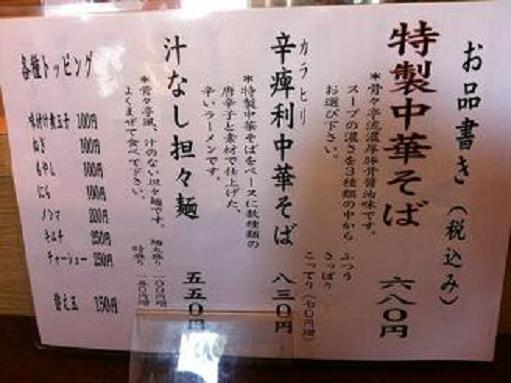 お品書き(税込み)
特製中華そば 六八〇円
*骨々亭流濃厚豚骨醤油味です。
スープの濃さを3種類の中から
お選び下さい。
ふつう
さっぱり
こってり(七〇円増)
カラヒリ
辛痺利中華そば 八三〇円
*特製中華そばをベースに数種類の
唐辛子と素材で仕上げた、
辛いラーメンです。
汁なし担々麺 五五〇円
*骨々亭風、汁のない担々麺です。
よくまぜて食べて下さい。
各種トッピング
味付け煮玉子 100円
ねぎ 100円
もやし 100円
にら 100円
メンマ 200円
キムチ 250円
チャーシュー 250円
替え玉 150円